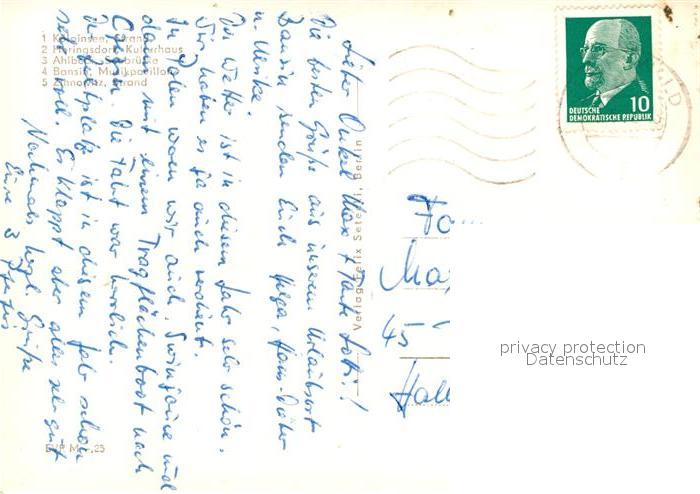 1 Kölpinsee, Strand
2 Heringsdorf, Kulturhaus
3 Ahlbeck, Seebrücke
4 Bansin, Musikpavillon
5 Zinnowitz, Strand
Lieber Onkel Max + Tante Lotti!
Die besten Grüße aus unserem Urlaubsort
Bansin senden Euch Helga, Hans-Dieter
u. Ulrike.
Das Wetter ist in diesem Jahr sehr schön.
Wir haben es ja auch verdient.
In Polen waren wir auch. Swinoujscie und
dann mit einem Tragflächenboot nach
Die Fahrt war herrlich.
Der Zeltplatz ist in diesem Jahr schon
sehr voll. Es klappt aber alles sehr gut
Nochmals herzl. Grüße
Eure 3
Verlag Felix Setecki, Berlin
DEUTSCHE
DEMOKRATISCHE REPUBLIK
10
Fa
Max
45
Hall
privacy protection
Datenschutz